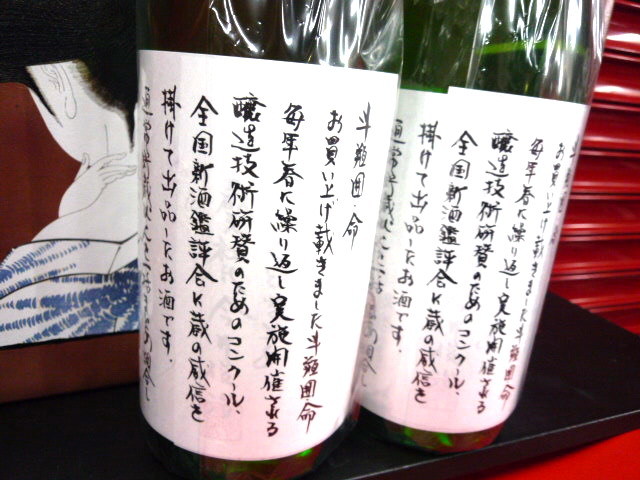 斗瓶囲・命
お買い上げ戴きました斗瓶囲命
毎年春に繰り返し実施開催される
醸造技術研賛のためのコンクール、
全国新酒鑑評会に蔵の威信を
掛けて出品したお酒です。
斗
お買い上げ戴きました斗瓶囲命
毎年春に繰り返し実施開催される
醸造技術研賛のためのコンクール、
全国新酒鑑評会に蔵の威信を
掛けて出品したお酒です。